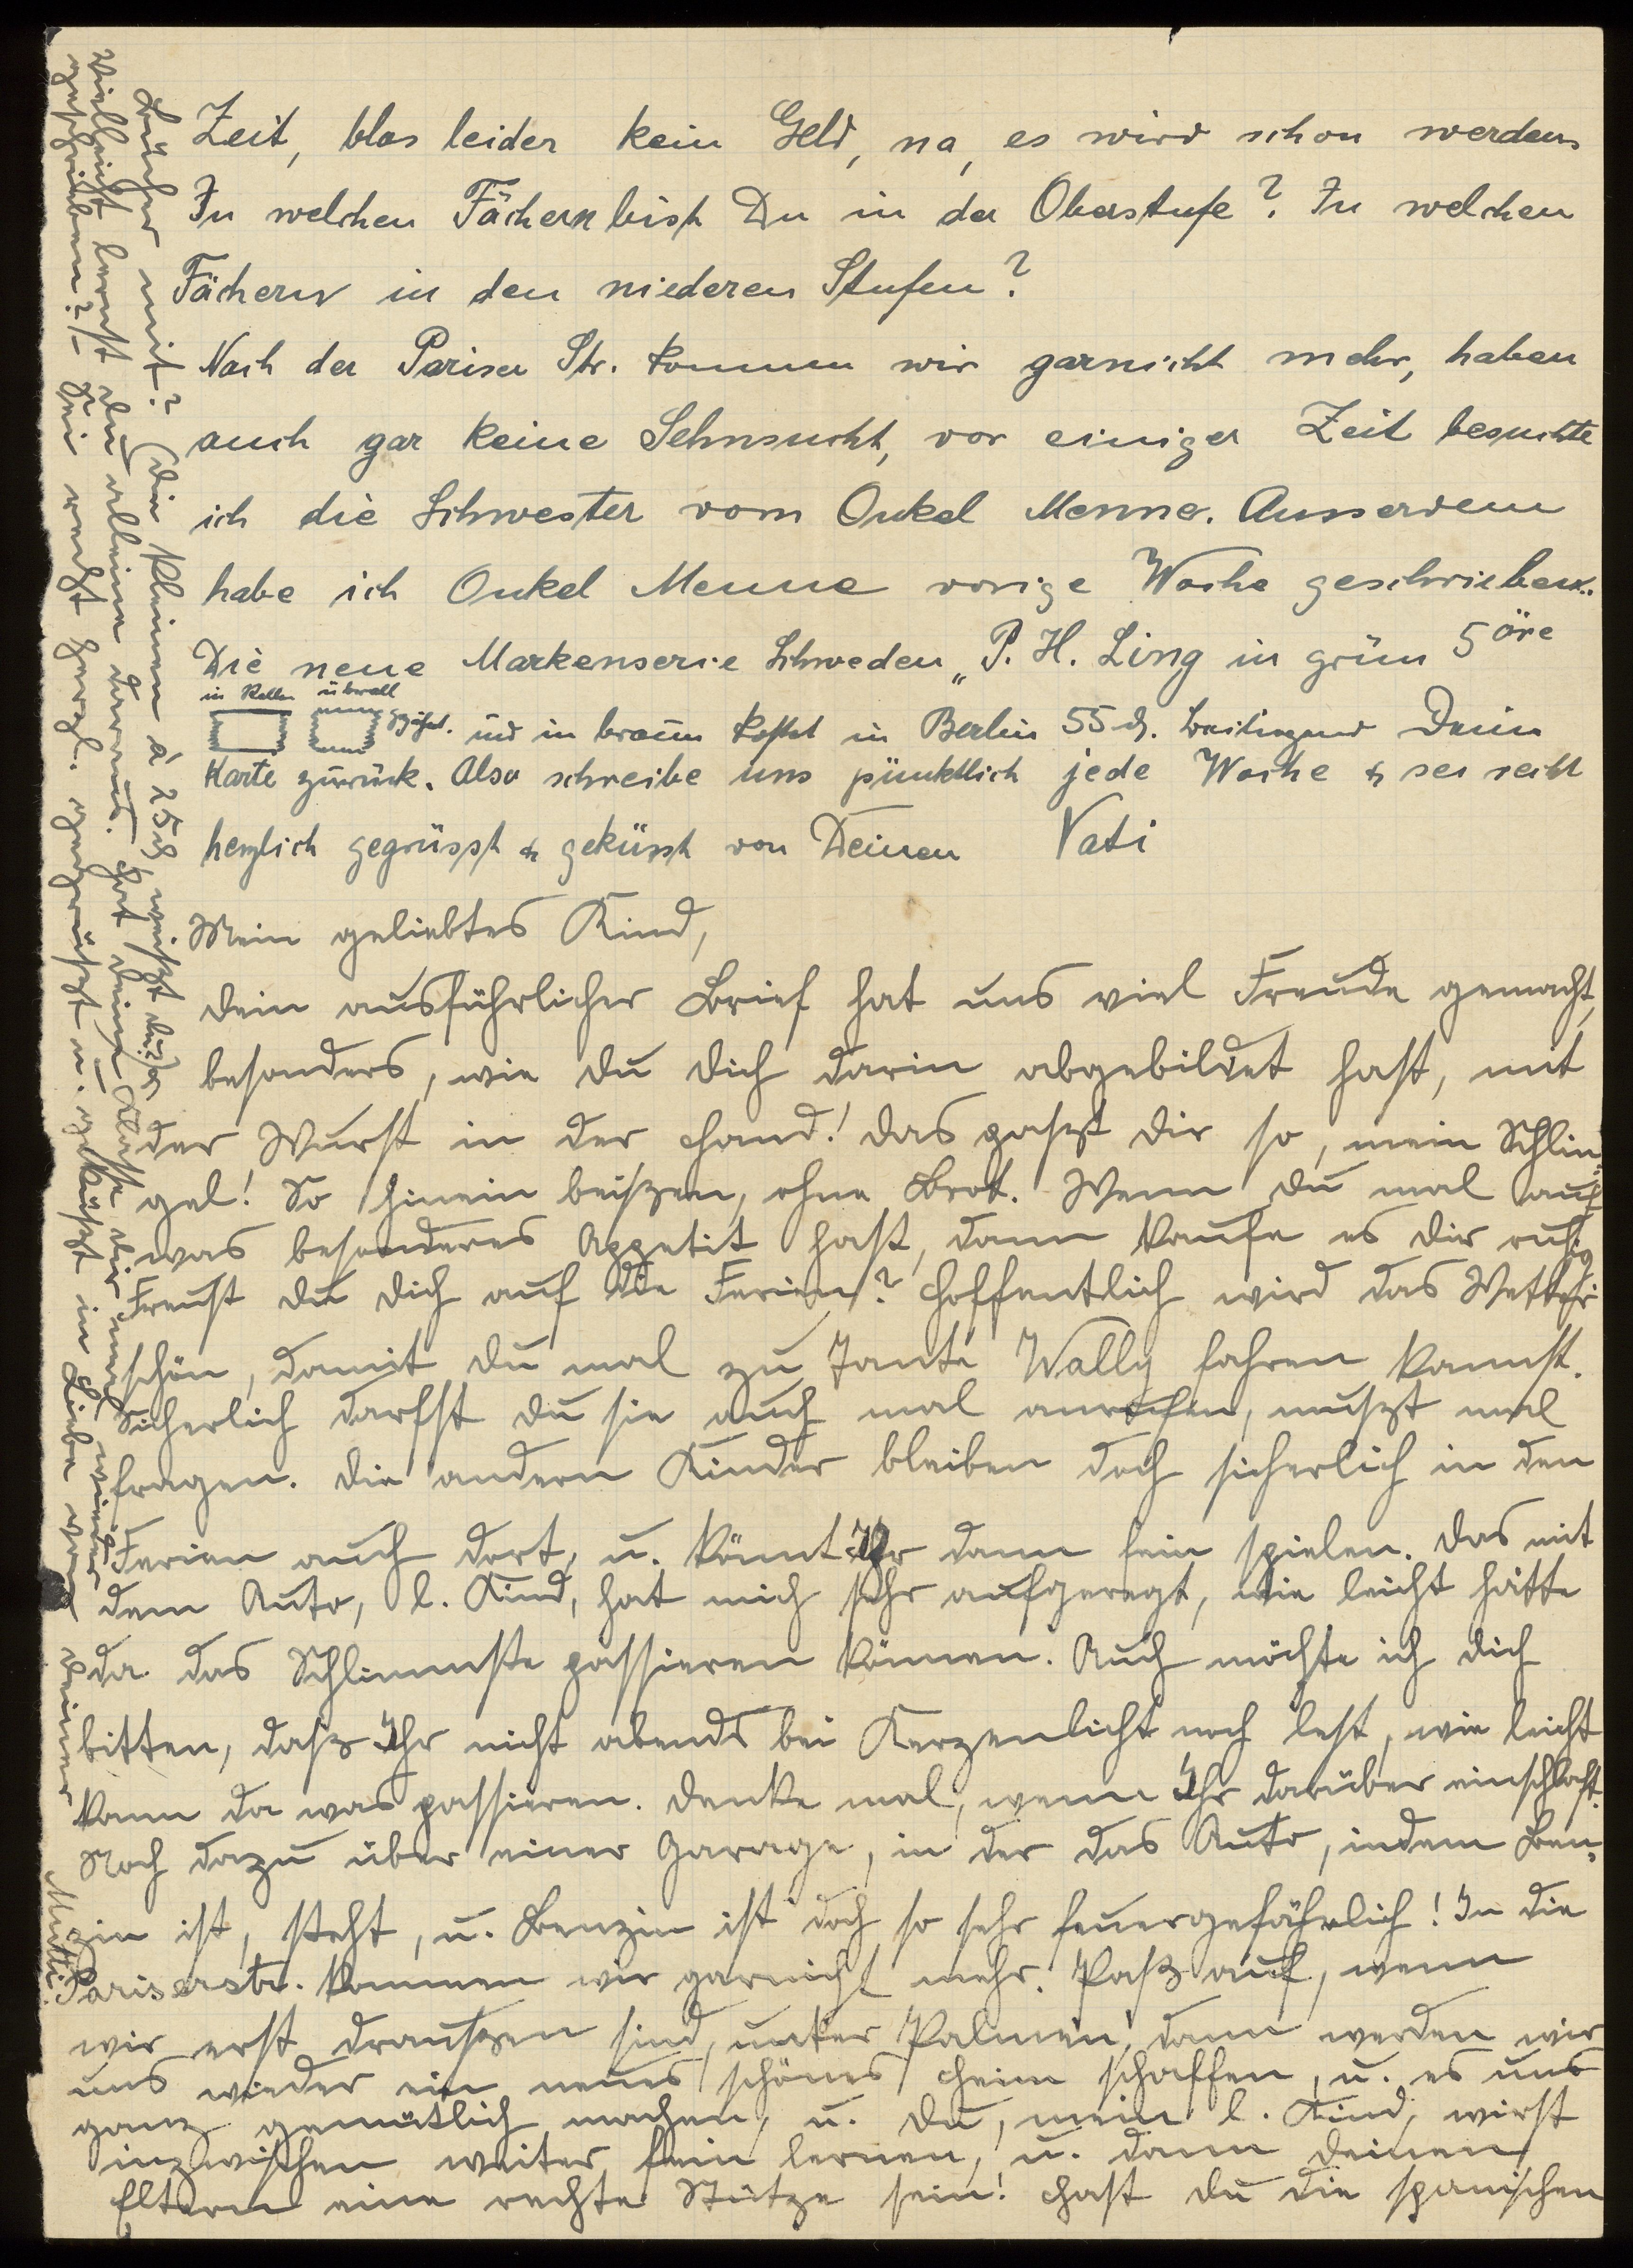 Zeit, blos leider kein Geld, na, es wird schon werden.
In welchen Fächern bist Du in der Oberstufe? In welchen
Fächern in den niederen Stufen?
Nach der Pariser Str. kommen wir garnicht mehr, haben
auch gar keine Sehnsucht, vor einiger Zeit besuchte
ich die Schwester vom Onkel Menne. Ausserdem
habe ich Onkel Menne vorige Woche geschrieben.
Die neue Markenserie Schweden „P. H. Ling in grün 5 öre
in Rollen überall
gezähnt. und in braun kostet in Berlin 55 ₰. beiliegend Deine
Karte zurück. Also schreibe uns pünktlich jede Woche & sei recht
herzlich gegrüsst & geküsst von Deinem Vati
Mein geliebtes Kind,
dein ausführlicher Brief hat uns viel Freude gemacht,
besonders, wie du dich darin abgebildet hast, mit
der Wurst in der Hand! Das paszt dir so, mein Schlin-
gel! So hinein beiszen, ohne Brot. Wenn du mal auf
was besonderes Appetit hast, dann kaufe es dir ruhig
Freust du dich auf die Ferien? Hoffentlich wird das Wetter
schön, damit du mal zu Tante Wally fahren kannst.
Sicherlich darfst du sie auch mal anrufen, muszt mal
fragen. Die andern Kinder bleiben doch sicherlich in den
Ferien auch dort, u. könnt Ihr dann fein spielen. Das mit
dem Auto, l. Kind, hat mich sehr aufgeregt, wie leicht hätte
da das Schlimmste passieren können. Auch möchte ich dich
bitten, dasz Ihr nicht abends bei Kerzenlicht noch lest, wie leicht
kann da was passieren. Denke mal, wenn Ihr darüber einschlaft.
Noch dazu über einer Garage, in der das Auto, indem Ben-
zin ist, steht, u. Benzin ist doch so sehr feuergefährlich! In die
Pariserstr. kommen wir garnicht mehr. Pasz auf, wenn
wir erst drauszen sind, unter Palmen, dann werden wir
uns wieder ein neues schönes Heim schaffen, u. es uns
ganz gemütlich machen, u. du, mein l. Kind, wirst
inzwischen weiter fein lernen, u. dann deinen
Eltern eine rechte Stütze sein! Hast du die spanischen
Bücher mit? (die kleinen á 25 ₰, weiszt du?)
Vielleicht lernst du allein daraus. Hat deine Klasse dir mal wieder
geschrieben? – Sei recht herzl. gegrüszt u. geküszt in Liebe von deiner
Mutti.